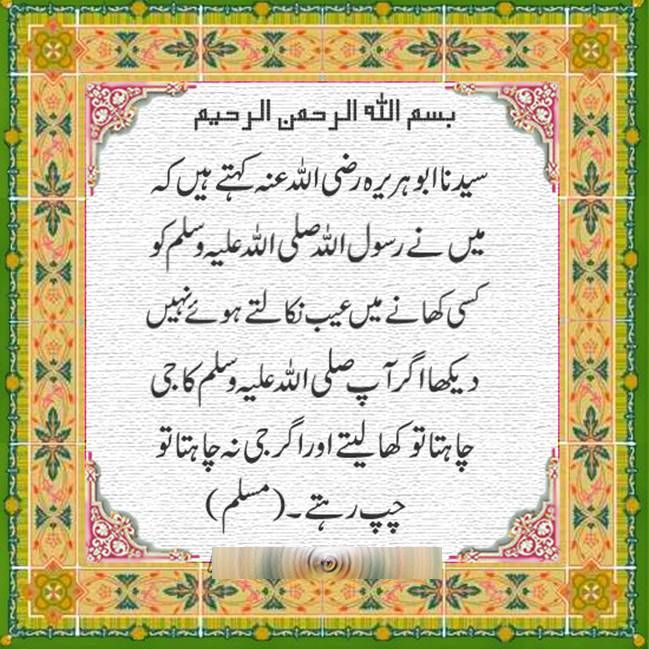 بسم الله الرحمن الرحيم
سیدنا ابو ہریرہ رضی اللہ عنہ کہتے ہیں کہ
میں نے رسول اللہ صلی اللہ علیہ وسلم کو
کسی کھانے میں عیب نکالتے ہوئے نہیں
دیکھا اگر آپ صلی اللہ علیہ وسلم کا جی
چاہتا تو کھا لیتے اور اگر جی نہ چاہتا تو
چپ رہتے۔ (مسلم)